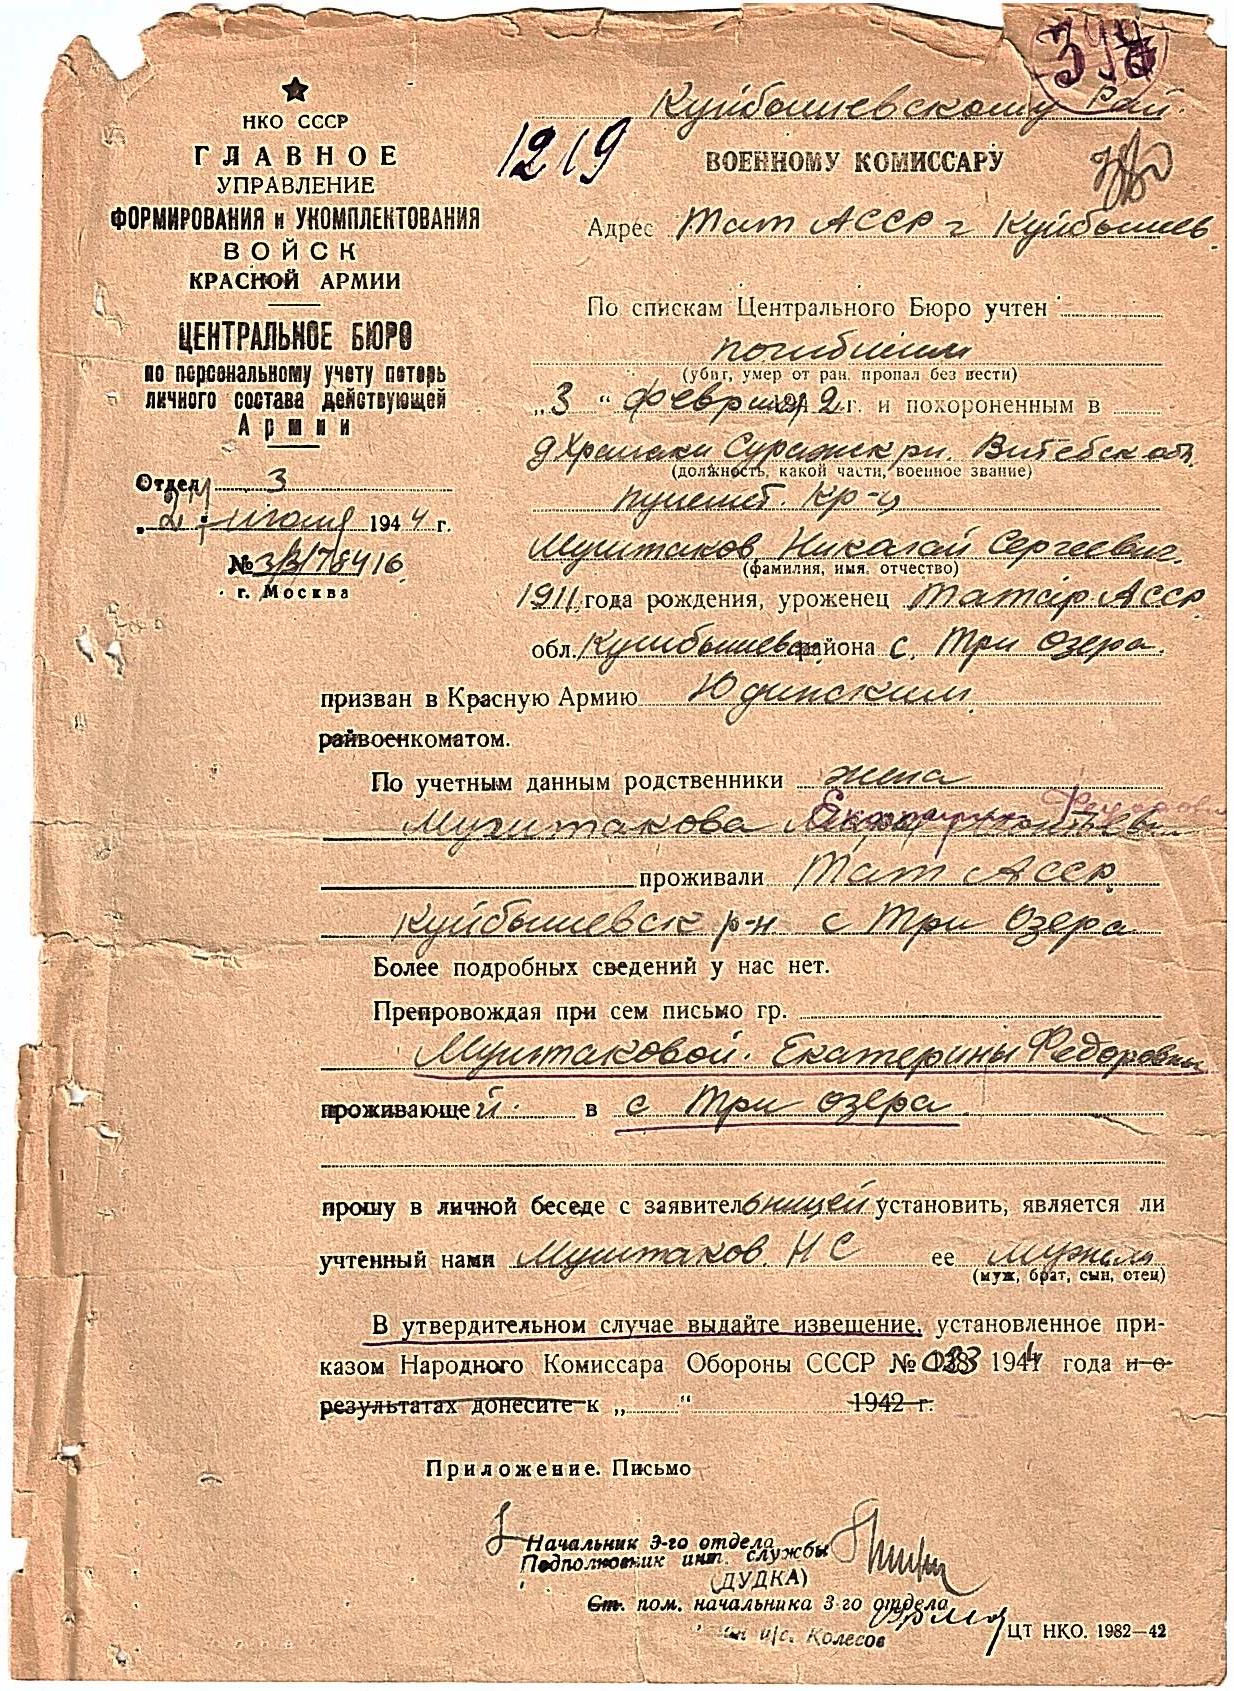 НКО СССР
ГЛАВНОЕ
УПРАВЛЕНИЕ
ФОРМИРОВАНИЯ и УКОМПЛЕКТОВАНИЯ
ВОЙСК
КРАСНОЙ АРМИИ
ЦЕНТРАЛЬНОЕ БЮРО
по персональному учету потерь
личного состава действующей
Армии
Отдел 3
1944 г.
г. Москва
1219
Куйбышевскому Рай.
ВОЕННОМУ КОМИССАРУ
Адрес Тат АССР г Куйбышев.
По спискам Центрального Бюро учтен
погибшим
(убит, умер от ран, пропал без вести)
„3“ февраля 1942 г. и похороненным в
д Хралаки Суражск рн. Витебск обл.
(должность, какой части, военное звание)
пулемет. Кр-ц
Муштаков Николай Сергеевич
(фамилия, имя, отчество)
1911 года рождения, уроженец Татар АССР
обл. Куйбышевск района с. Три Озера.
призван в Красную Армию Юдинским
райвоенкоматом.
По учетным данным родственники жена
Муштакова Екатерина
проживали Тат АССР
Куйбышевск р-н с Три Озера
Более подробных сведений у нас нет.
Препровождая при сем письмо гр.
Муштаковой Екатерины Федоровны
проживающей в с Три озера
прошу в личной беседе с заявительницей установить, является ли
учтенный нами Муштаков Н С ее мужем
(муж, брат, сын, отец)
В утвердительном случае выдайте извещение, установленное при-
казом Народного Комиссара Обороны СССР № 023 1944 года и о
результатах донесите к „ “ 1942 г.
Приложение. Письмо
Начальник 3-го отдела
Подполковник инт. службы
(ДУДКА)
Ст. пом. начальника 3-го отдела
и/с. Колесов
ЦТ НКО. 1982—42